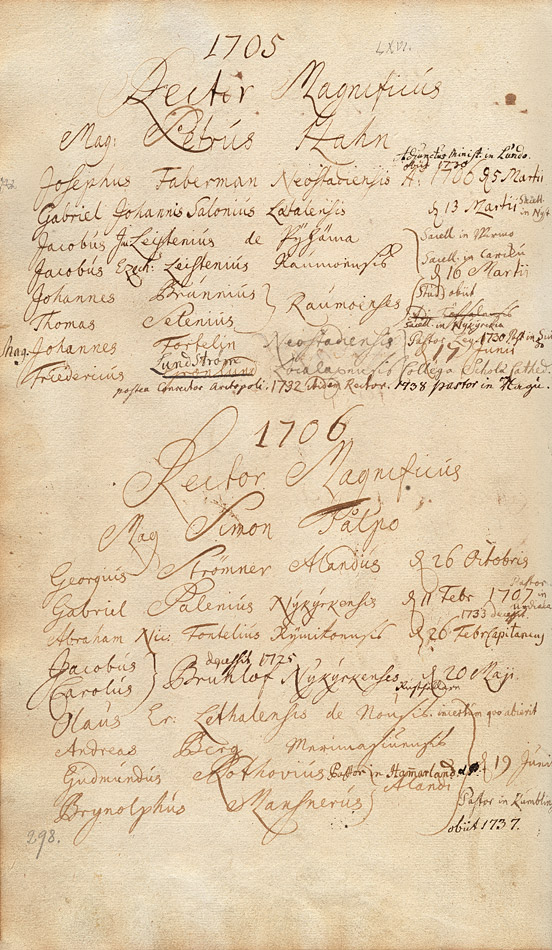 1705 LXVI.
Rector Magnificus
Mag: Petrus Hahn
Adjunctus Minist. in Lundo.
obiit 1720
Josephus Faberman Neostadiensis A: 1706 d 5 Martii
Gabriel Johannis Salonius Letalensis d 13 Martii Sacell. in Nyst
Jacobus Leistenius de Pyhäma Sacell. in
Jacobus Ezech: Leistenius Raumoensis Sacell. in
d 16 Martii
Johannes Brunnius Stud: obiit
Raumoenses
Thomas Selenius
Sacell. in Nykyrckia
Mag. Johannes Forselin Neostadiensis Pastor 1730 Past in
17 Junii
Lundström
Friedericius Grönlund Localaxensis Collega Schola Cathed.
postea Conrector Aretopoli. 1732 Rector. 1738 pastor in
1706
Rector Magnificus
Mag Simon Tålpo
Georgius Strömner Alandus d 26 Octobris
Gabriel Palenius Nykyrkensis d 11 Febr 1707 Pastor in
1733
Abraham Nic: Fortelius Kymitoensis d 26 Febr Capitaneus
decessit 1725
Jacobus
Carolus Brunlöf Nykyrkenses d 20 Maji.
Olaus Er: Lethalensis de Nousis. incertum quo abierit
Andreas Berg Merimascuensis
Gudmundus Rothovius Pastor in Hamarland d 19 Junii
Alandi
Brynolphus Mansnerus Pastor in Kumbling
obiit 1737.
298.